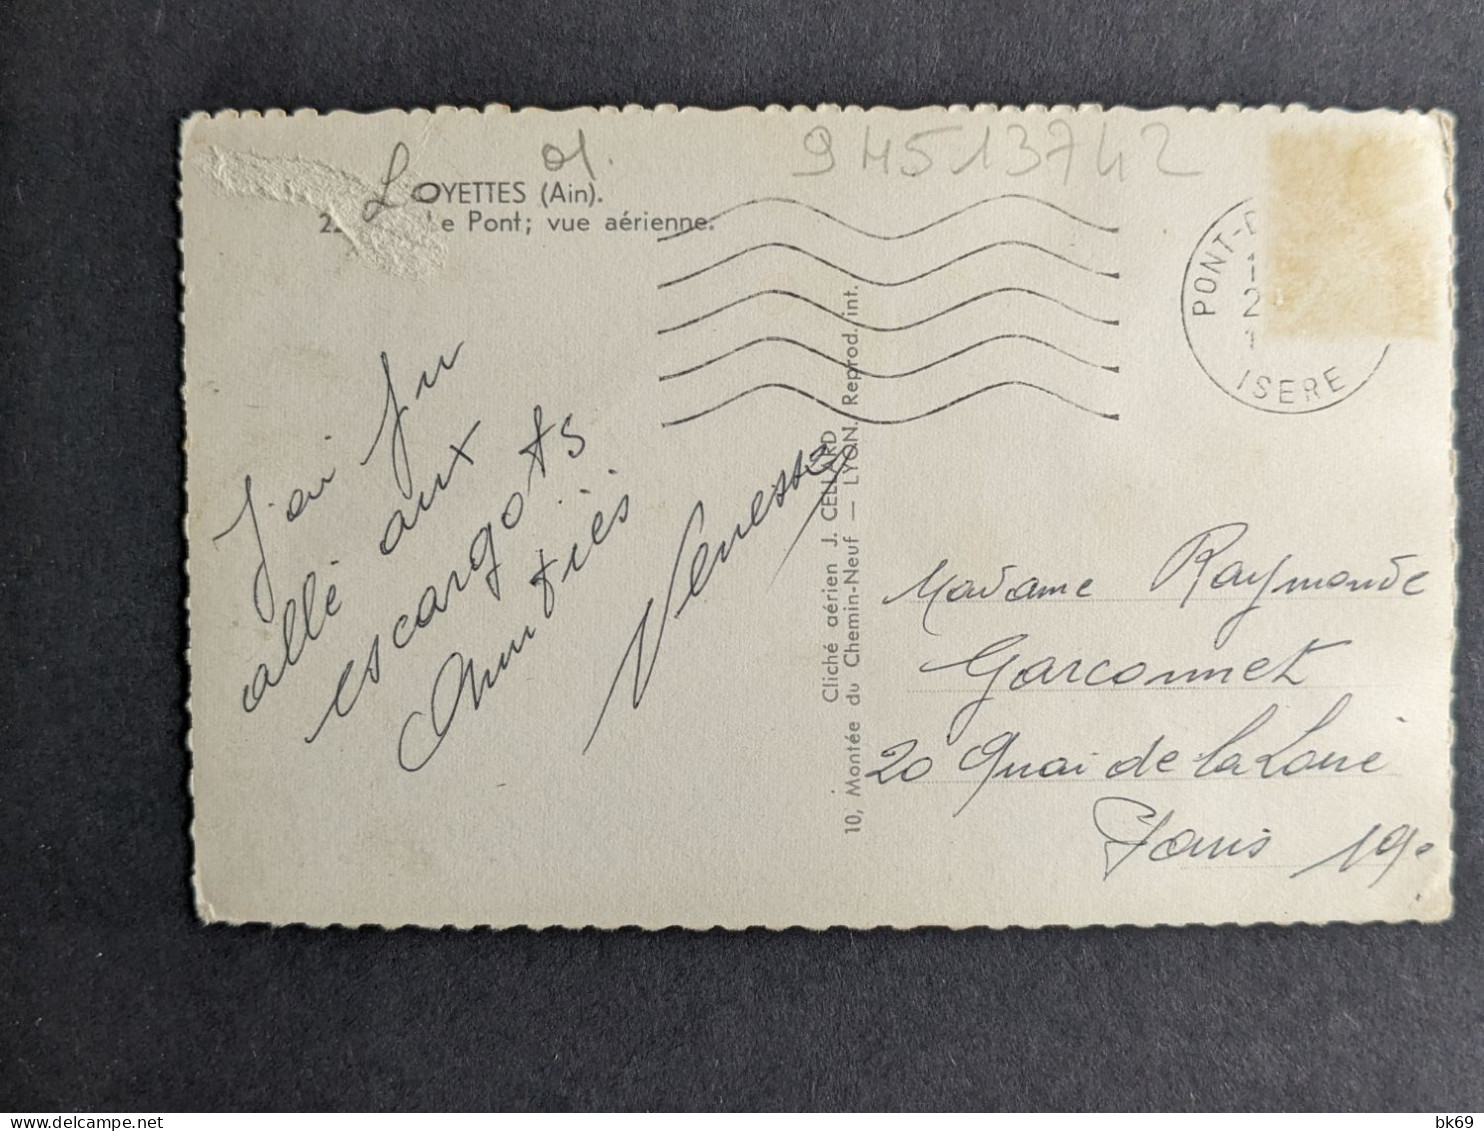 01.
94513742
LOYETTES (Ain).
2 e Pont; vue aérienne.
PONT-D
2
ISERE
J'ai pu
allé aux
escargots
Amitiés
Venessa
Cliché aérien J. CELLARD
10, Montée du Chemin-Neuf — LYON. Reprod. int.
Madame Raymonde
Garconnet
20 Quai de la Loire
Paris 19e
delcampe.net
bk69